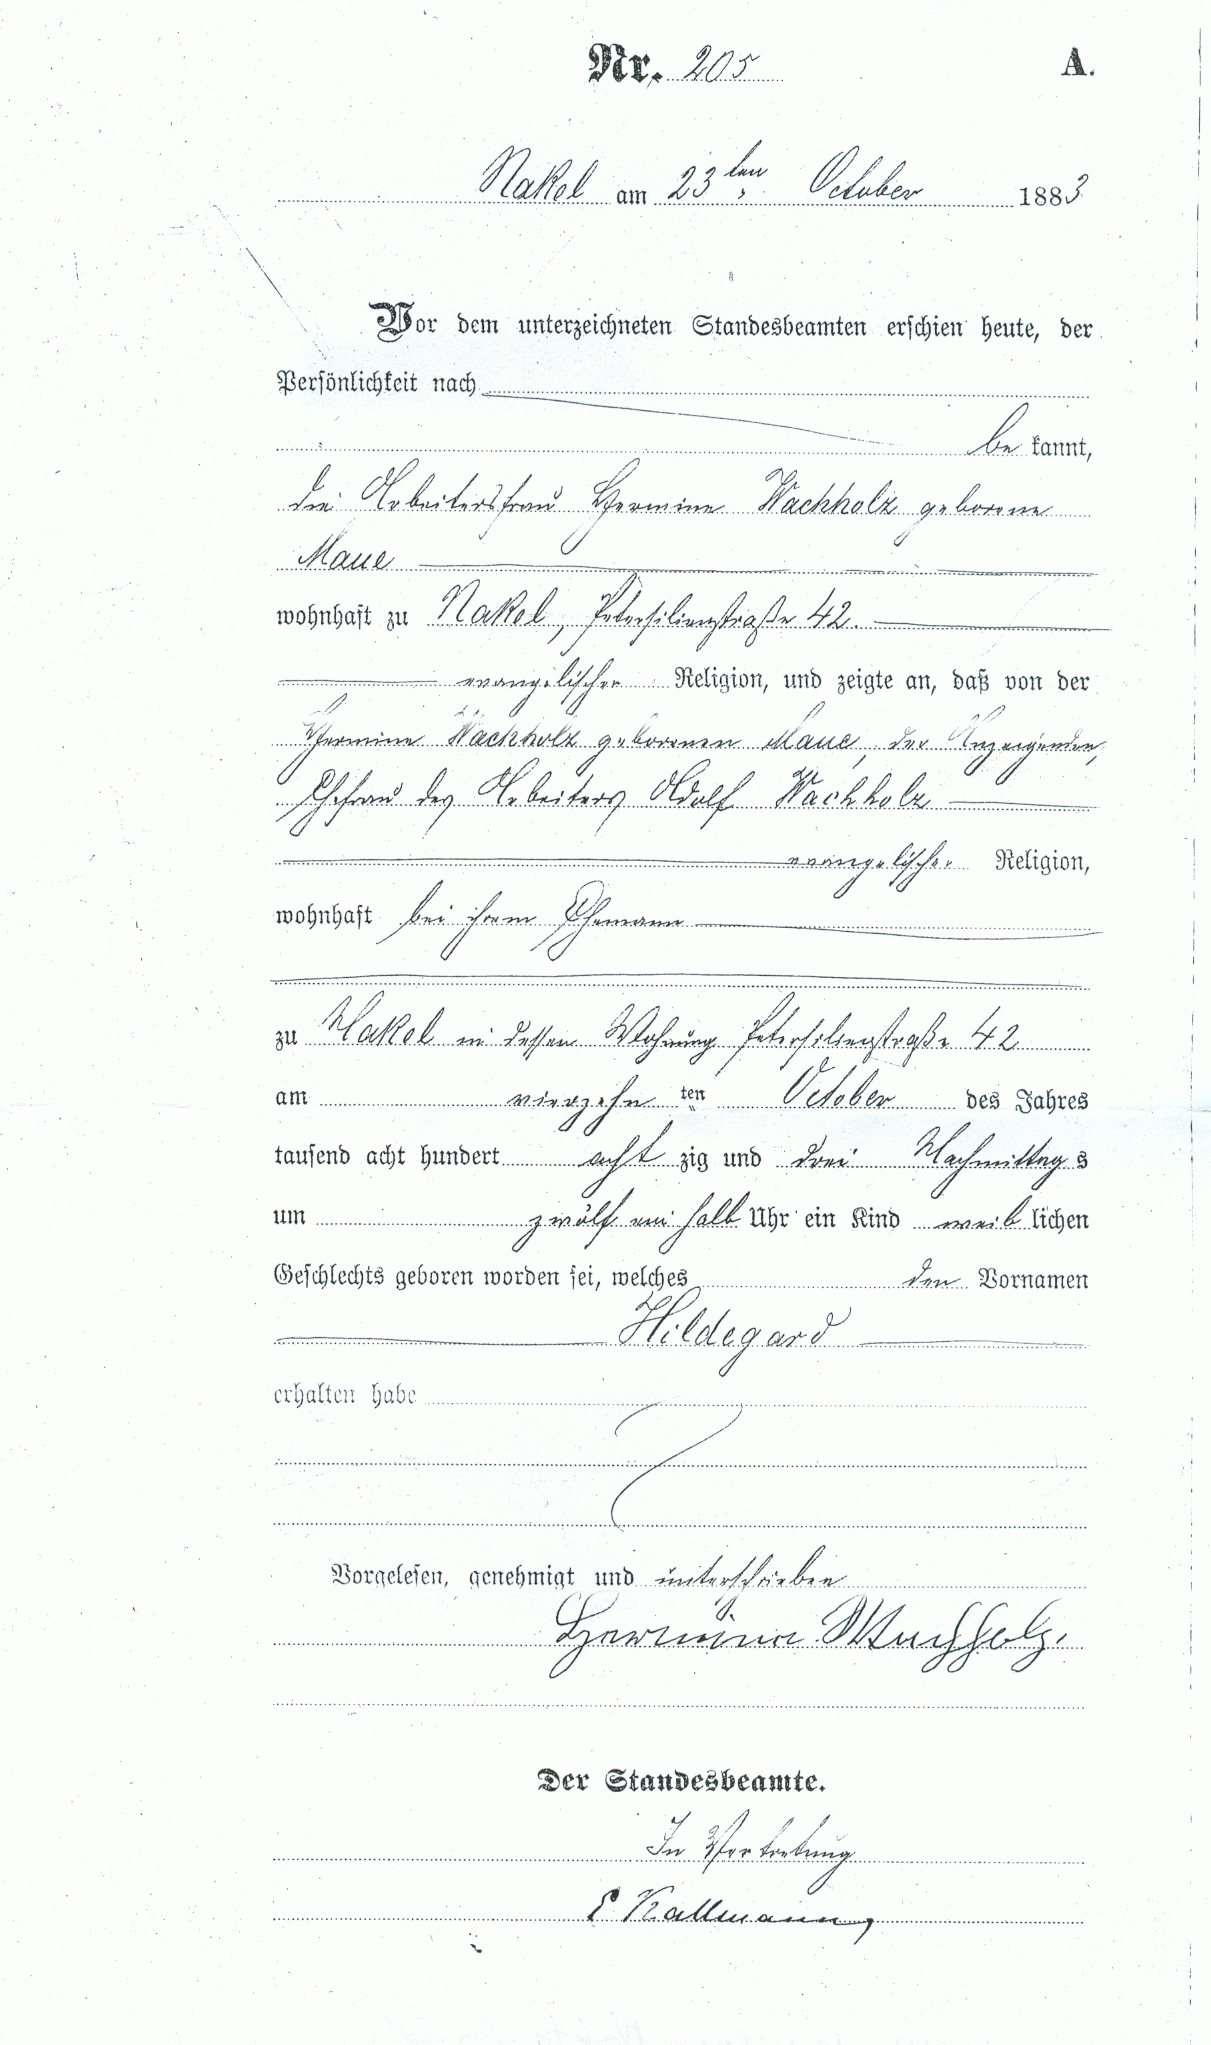 Nr. 205 A.
Nakel am 23ten October 1883
Vor dem unterzeichneten Standesbeamten erschien heute, der
Persönlichkeit nach
be kannt,
die Arbeitersfrau Hermine Wachholz geborene
Maue
wohnhaft zu Nakel, Petersilienstraße 42.
evangelischer Religion, und zeigte an, daß von der
Hermine Wachholz geborenen Maue, der Anzeigenden,
Ehefrau des Arbeiters Adolf Wachholz
evangelischer Religion,
wohnhaft bei ihrem Ehemann
zu Nakel in dessen Wohnung Petersilienstraße 42
am vierzehn ten October des Jahres
tausend acht hundert acht zig und drei Nachmittag s
um zwölf ein halb Uhr ein Kind weib lichen
Geschlechts geboren worden sei, welches den Vornamen
Hildegard
erhalten habe
Vorgelesen, genehmigt und unterschrieben
Hermine Wachholz.
Der Standesbeamte.
In Vertretung
E Kallmann